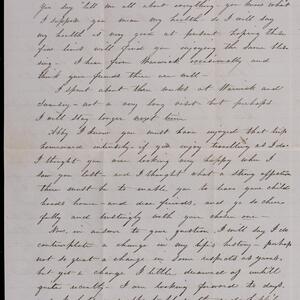 You say "tell me all about everything you know what
I suppose you mean my health, so I will say
my health is very good at present hoping these
few lines will find you enjoying the same bles-
sing. I hear from Warwick occasionally and
that your friends there are well—
I spent about three weeks at Warwick and
not a very long visit but perhaps
I will stay longer next time
Abby I know you must have enjoyed that trip
homeward intensely if you enjoy travelling as I do.
I thought you are looking very happy when I
saw you last— and I thought what a strong affection
there must be to enable you to leave your child
hoods home— and dear friends, and go so cheer
fully and trustingly with your chosen one—
Now, in answer to your question, I will say I do
contemplate a change in my life's history— perhaps
not so great a change in some respects as yours,
but yet a change I little dreamed of until
quite recently. I am looking forward to days,